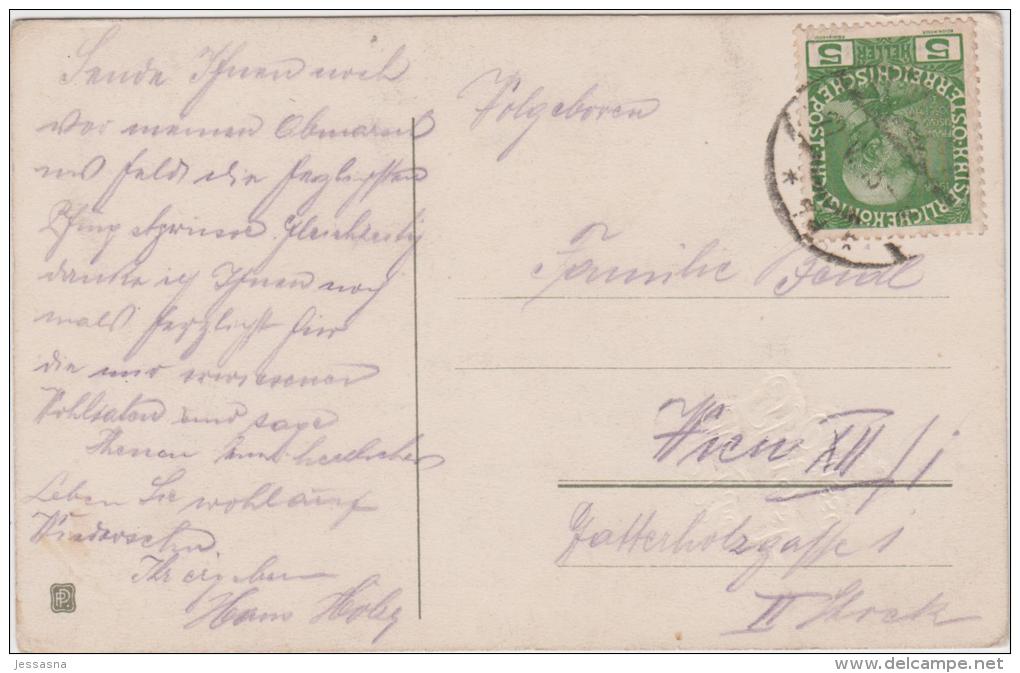 Sende Ihnen noch
vor meinen Abmarsch
ins Feld die herzlichsten
Pfingstgrüsse. Gleichzeitig
danke ich Ihnen noch
mals herzlichst für
die mir erwiesenen
Wohltaten und sage
Ihenen ein herzliches
Leben Sie wohl auf
Wiedersehn.
Ihr ergeben
Hans
Wolgeboren
Familie
Wien XII/1
Hatterholzgasse 1
II Stock
5 HELLER 5
KAISERLICHE KÖNIGLICHE
ÖSTERREICHISCHE POST
PP
jessasna
delcampe.net